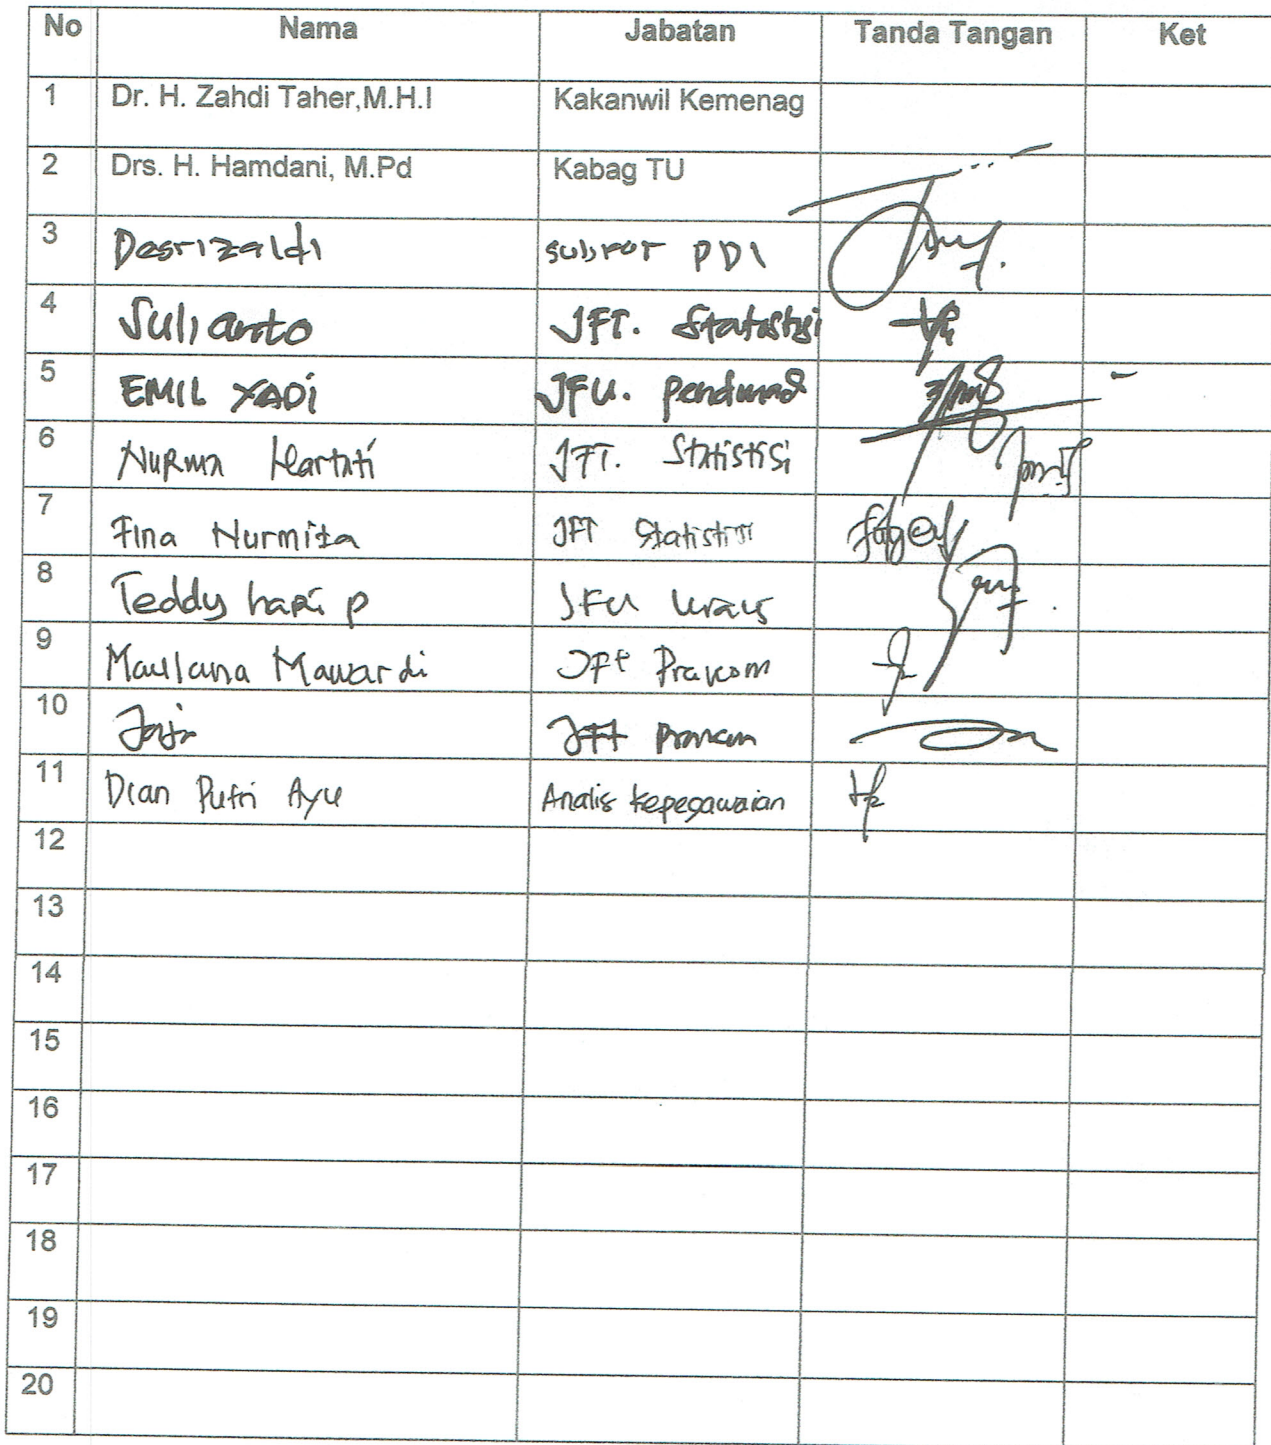 No Nama Jabatan Tanda Tangan Ket
1 Dr. H. Zahdi Taher,M.H.I Kakanwil Kemenag
2 Drs. H. Hamdani, M.Pd Kabag TU
3 Desrizaldi PDI
4 Sulianto JFT. Statistisi
5 EMIL YADI JFU. Pendmad
6 Nurma Hartati JFT. Statistisi
7 Fina Nurmita JFT Statistisi
8 Teddy hari p JFU Urais
9 Maulana Mawardi JFt Prakom
10 JFT Prakom
11 Dian Putri Ayu Analis Kepegawaian
12
13
14
15
16
17
18
19
20